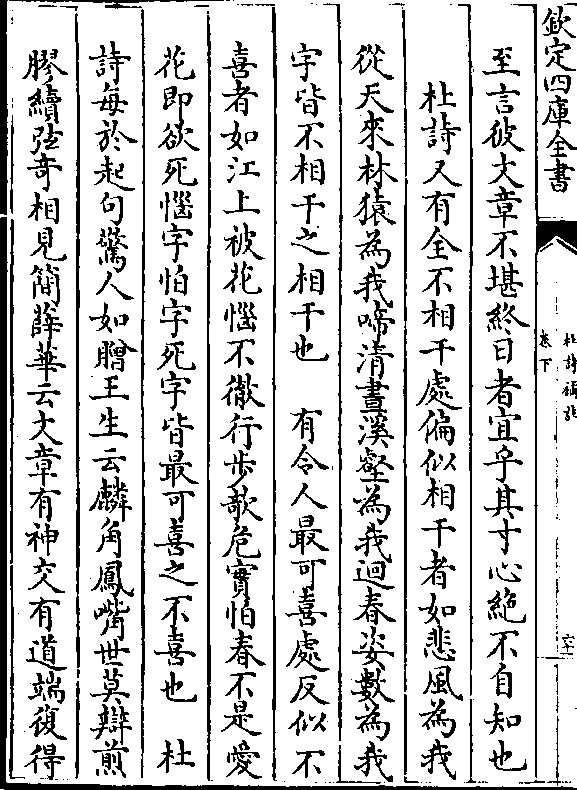 欽定四庫全書
杜詩攟
卷下
至言彼文章不堪終日者宜乎其寸心絶不自知也
杜詩又有全不相干處偏似相干者如悲風為我
從天來林猿為我啼清晝溪壑為我迴春姿數為我
字皆不相干之相干也　有令人最可喜處反似不
喜者如江上被花惱不徹行步欹危實怕春不是愛
花即欲死惱字怕字死字皆最可喜之不喜也　杜
詩每於起句驚人如贈王生云麟角鳳嘴世莫辯煎
膠續弦奇相見簡薛華云文章有神交有道端復得